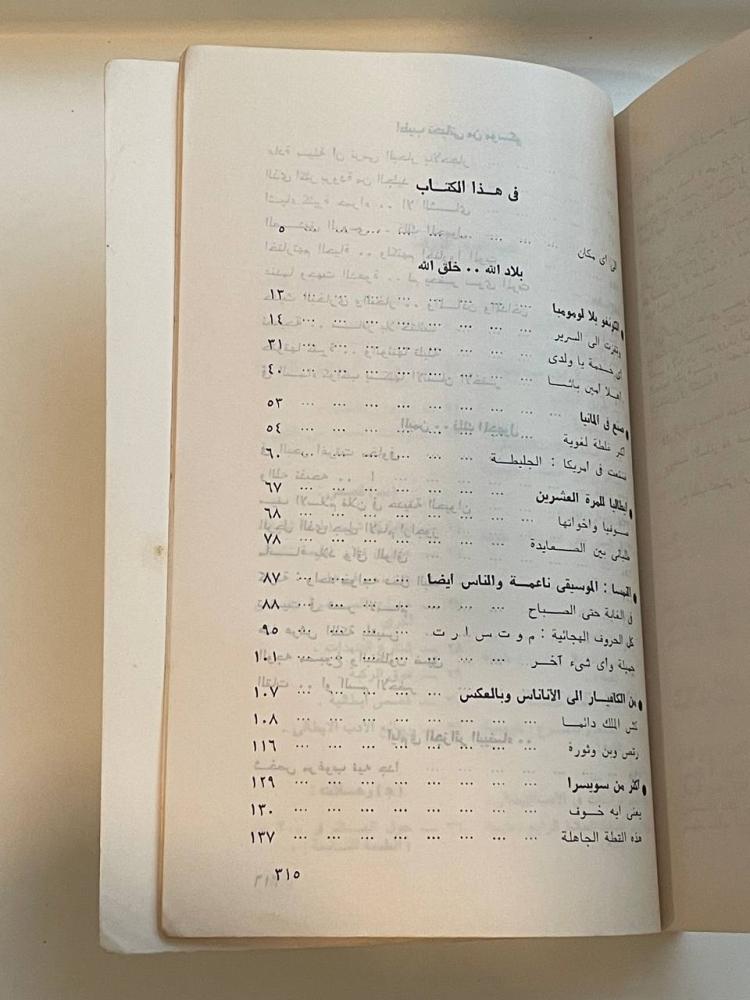 فى هذا الكتاب
الى اى مكان ... ... ... ... ... ... ٥
بلاد الله .. خلق الله
● الكونغو بلا لومومبا ... ... ... ... ... ١٣
وقفزت الى السرير ... ... ... ... ... ١٤
اى خدمة يا ولدى ... ... ... ... ... ٣١
اهلا امين باشا ... ... ... ... ... ٤٠
● صنع فى المانيا ... ... ... ... ... ٥٣
اكبر غلطة لغوية ... ... ... ... ... ٥٤
صنعت فى امريكا : الجليطة ... ... ... ... ٦٠
● ايطاليا للمرة العشرين ... ... ... ... ... ٦٧
صوفيا واخواتها ... ... ... ... ... ٦٨
طليانى بين الصعايدة ... ... ... ... ... ٧٨
● النمسا : الموسيقى ناعمة والناس ايضا ... ... ... ٨٧
فى الغابة حتى الصباح ... ... ... ... ... ٨٨
كل الحروف الهجائية : م و ت س ا ر ت ... ... ... ٩٥
جميلة واى شىء آخر ... ... ... ... ... ١٠١
● من الكافيار الى الاناناس وبالعكس ... ... ... ١٠٧
كش الملك دائما ... ... ... ... ... ١٠٨
رقص وبن وثورة ... ... ... ... ... ١١٦
● اكثر من سويسرا ... ... ... ... ... ١٢٩
يعنى ايه خوف ... ... ... ... ... ١٣٠
هذه القطة الجاهلة ... ... ... ... ... ١٣٧
٣١٥